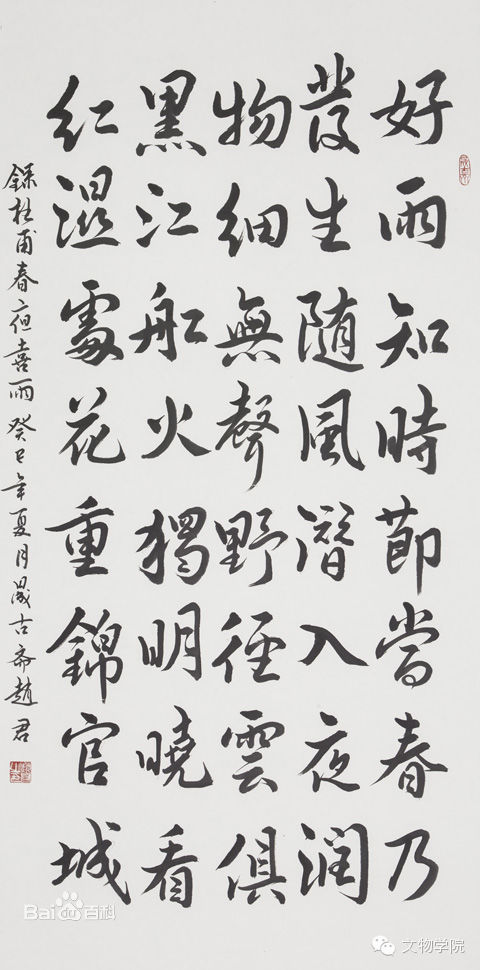 好雨知時節當春乃
發生随風潛入夜润
物细無聲野徑雲俱
黑江船火獨明曉看
红濕處花重錦官城
錄杜甫春夜喜雨癸巳年夏月晟古斋趙君
Bai百科
文物学院